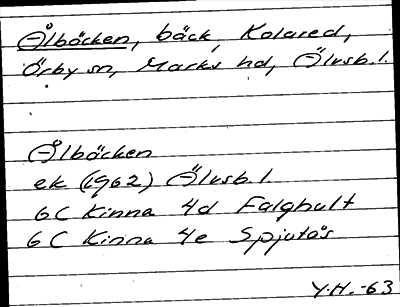 Ålbäcken, bäck, Kolared,
Örby sn, Marks hd, Älvsb.l.
Ålbäcken
ek (1962) Älvsb.l.
6C Kinna 4d Falghult
6C Kinna 4e Spjutås
Y.H. -63